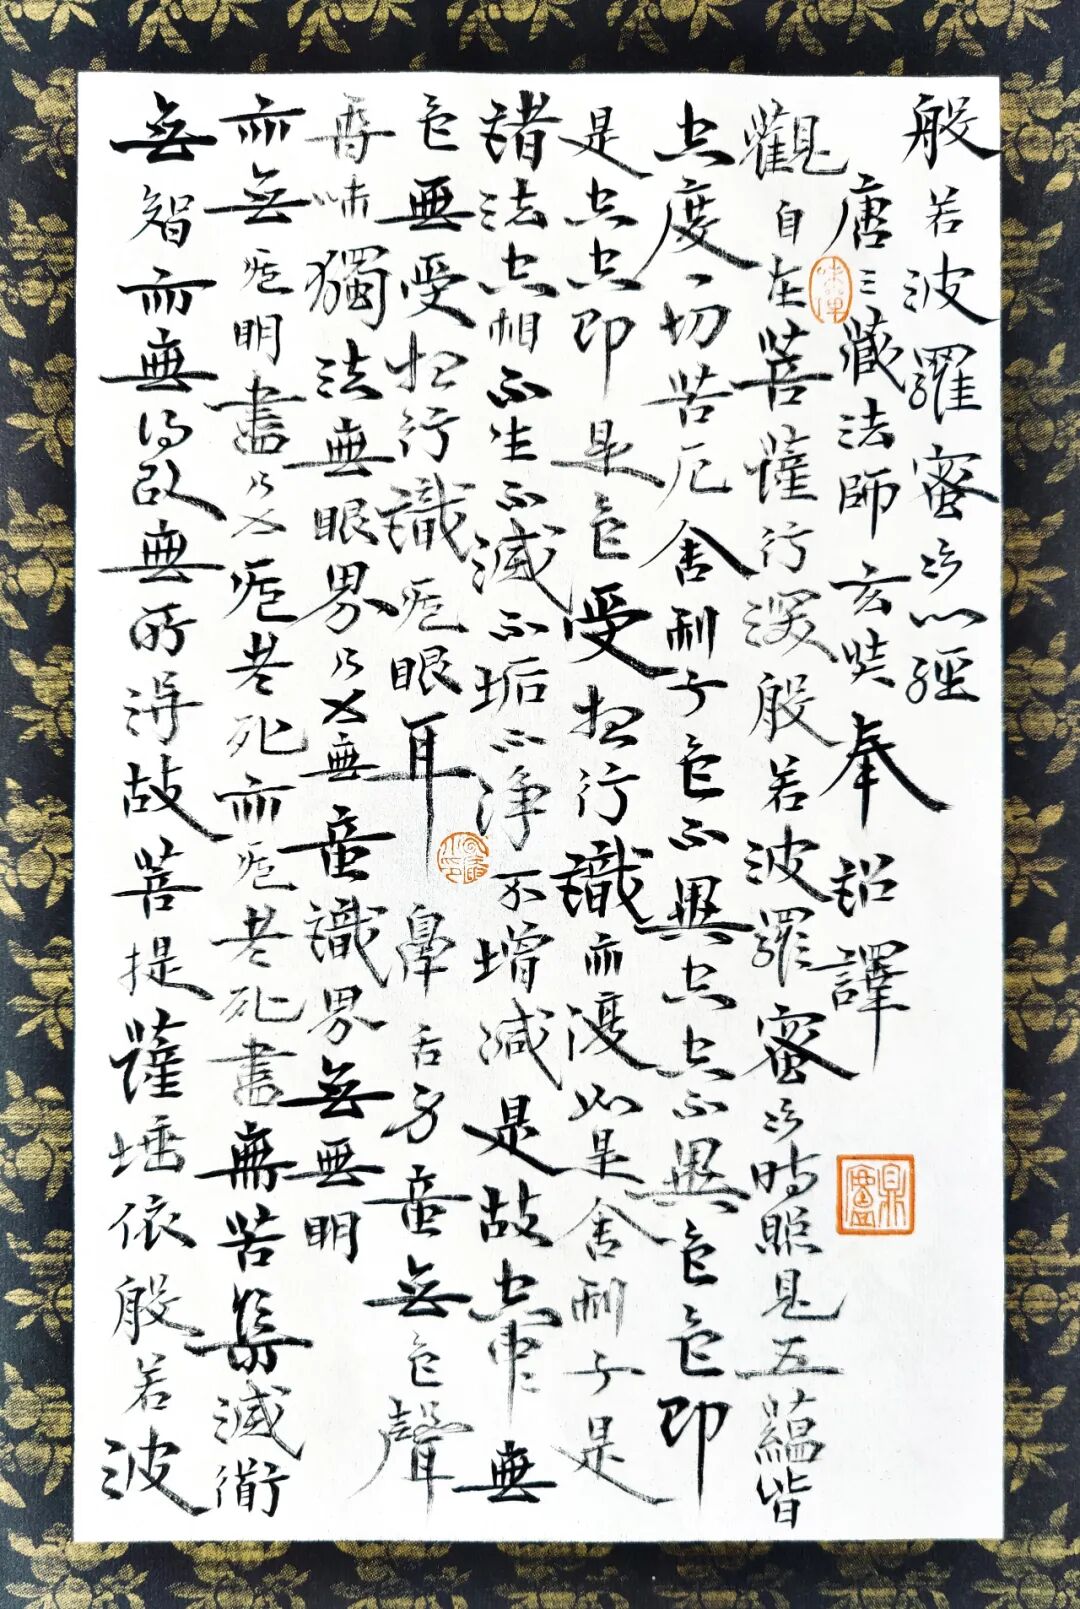 般若波羅蜜多心經
唐三藏法師玄奘奉詔譯
觀自在菩薩行深般若波羅蜜多時照見五蘊皆
空度一切苦厄舍利子色不異空空不異色色即
是空空即是色受想行識亦復如是舍利子是
諸法空相不生不滅不垢不淨不增減是故空中無
色無受想行識無眼耳鼻舌身意無色聲
香味觸法無眼界乃至無意識界無無明
亦無無明盡乃至無老死亦無老死盡無苦集滅道
無智亦無得以無所得故菩提薩埵依般若波
鼎